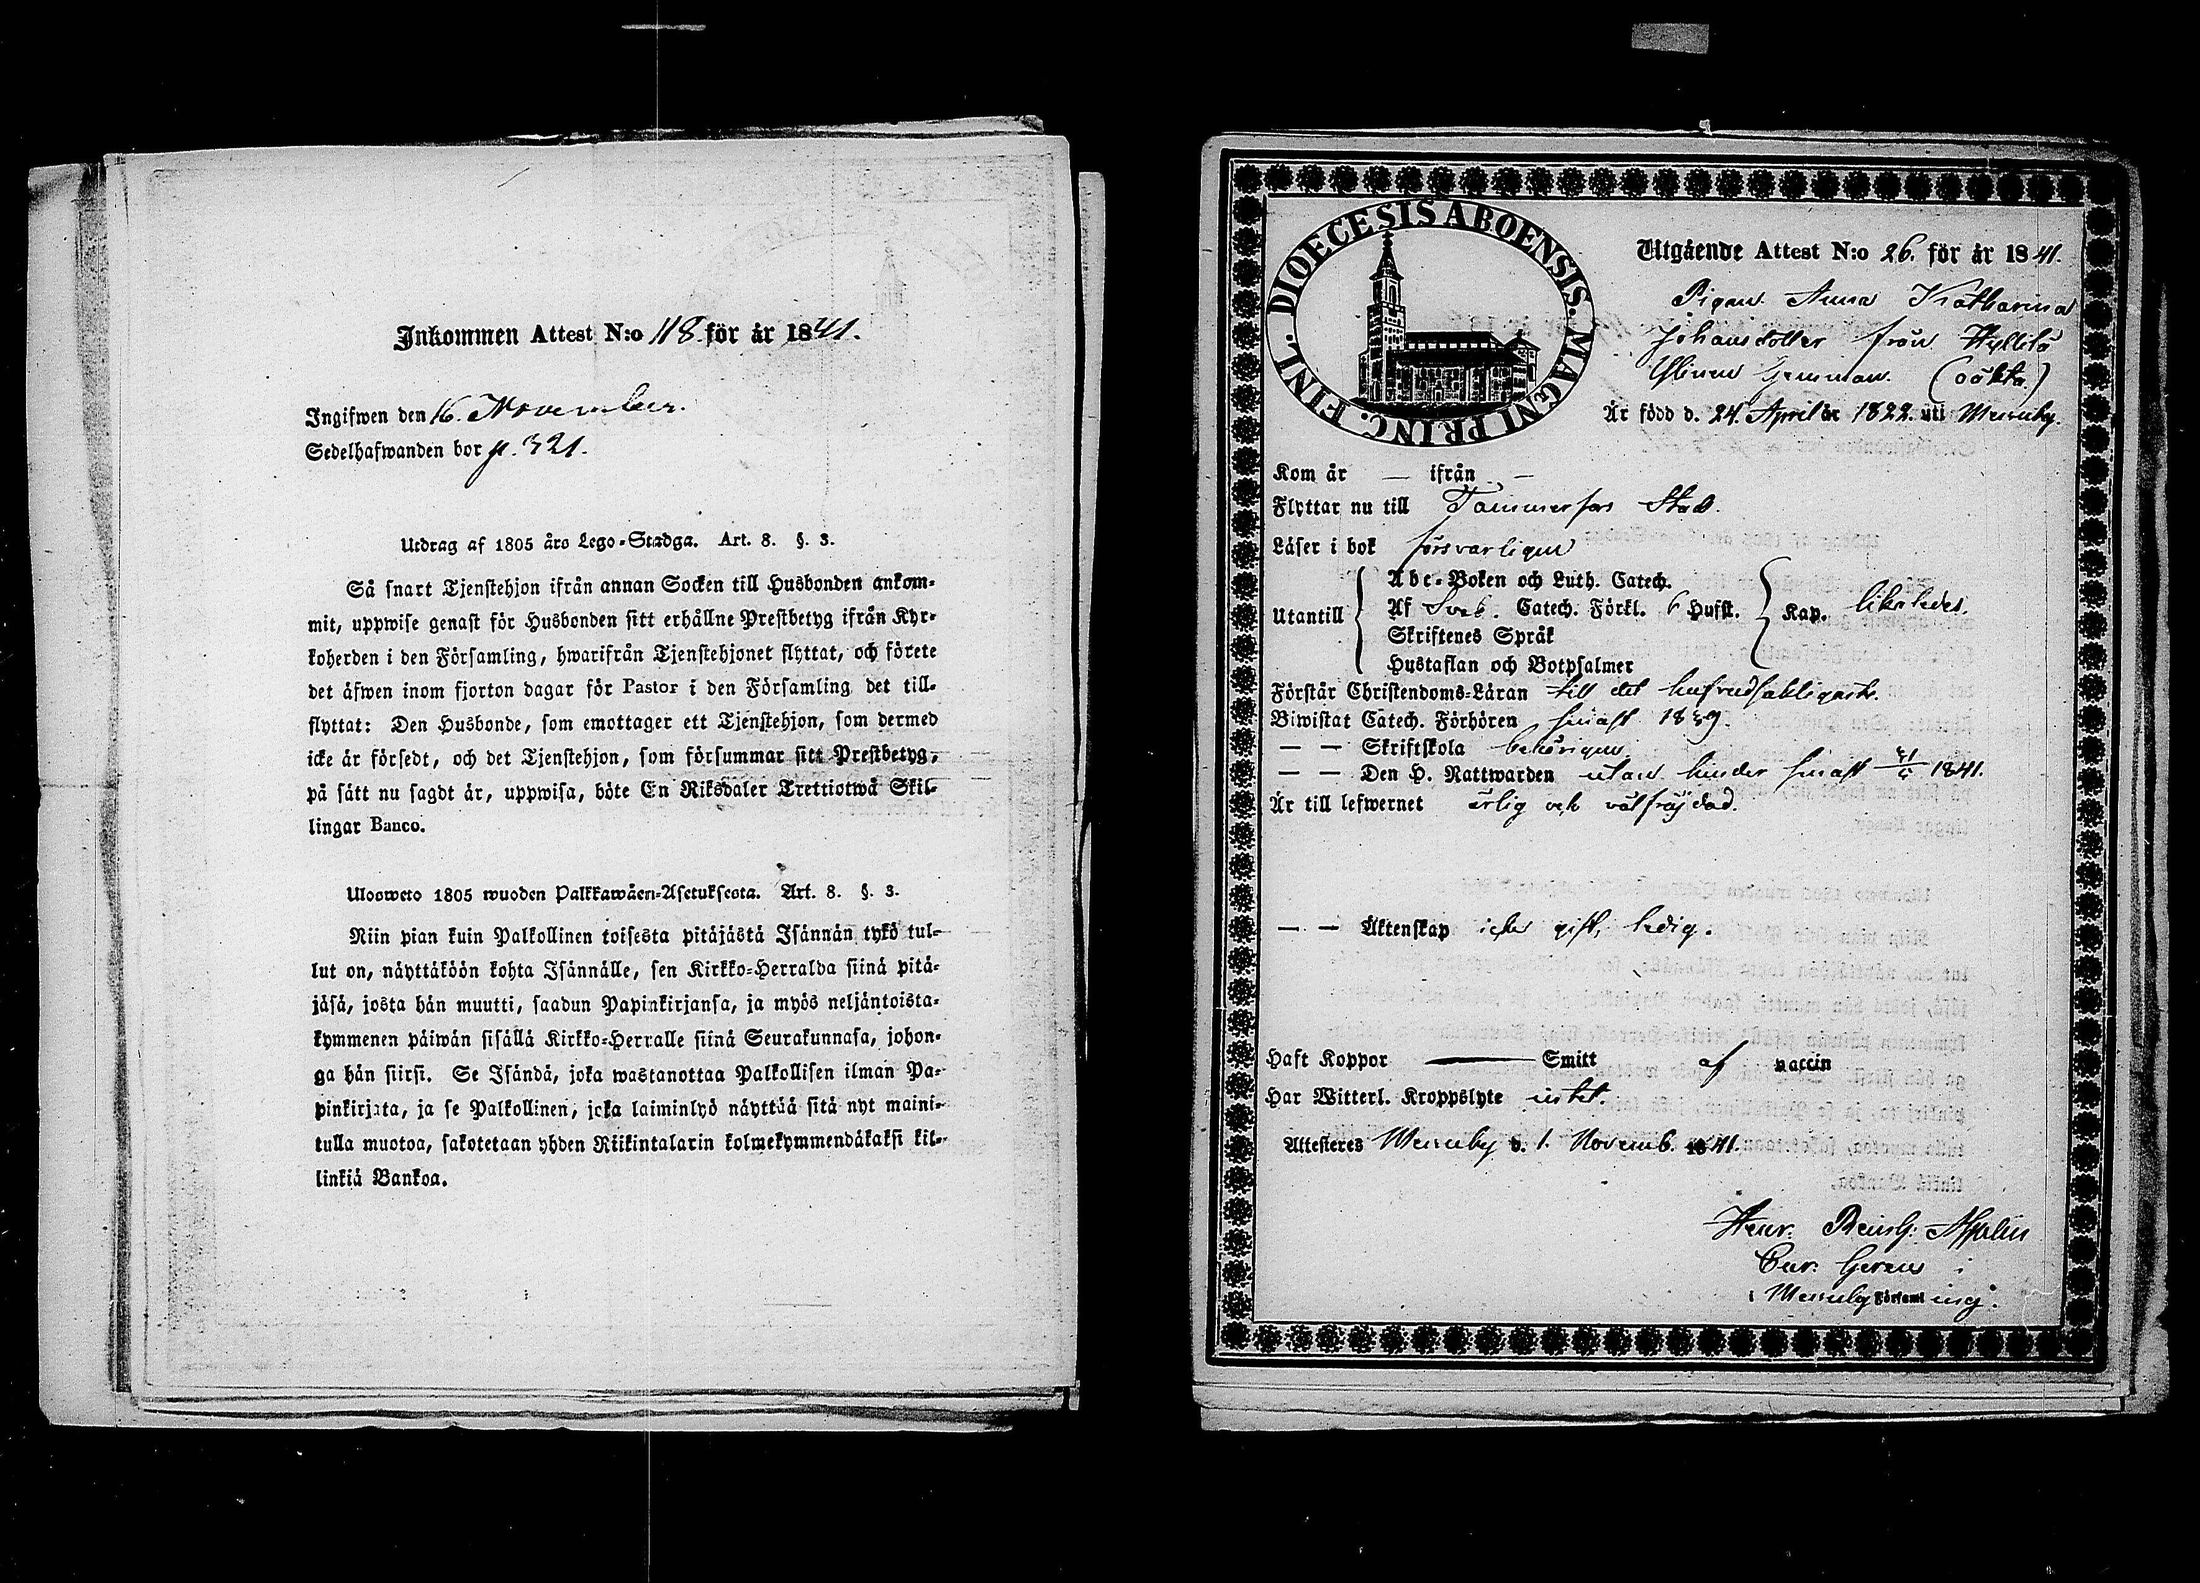 Inkommen Attest N:o 118 för år 1841.
Ingifwen den 16. November.
Sedelhafwanden bor p. 321.
Utdrag af 1805 års Lego-Stadga. Art. 8. §. 3.
Så snart Tjenstehjon ifrån annan Socken till Husbonden ankom-
mit, uppwise genast för Husbonden sitt erhållne Prestbetyg ifrån Kyr-
koherden i den Församling, hwarifrån Tjenstehjonet flyttat, och förete
det äfwen inom fjorton dagar för Pastor i den Församling det till-
flyttat: Den Husbonde, som emottager ett Tjenstehjon, som dermed
icke är försedt, och det Tjenstehjon, som försummar sitt Prestbetyg,
på sätt nu sagdt är, uppwisa, böte En Riksdaler Trettiotwå Skil-
lingar Banco.
Ulosweto 1805 wuoden Palkkawäen-Asetuksesta. Art. 8. §. 3.
Niin pian kuin Palkollinen toisesta pitäjästä Isännän tykö tul-
lut on, näyttäköön kohta Isännälle, sen Kirkko-Herralda siinä pitä-
jäsä, josta hän muutti, saadun Papinkirjansa, ja myös neljäntoista-
kymmenen päiwän sisällä Kirkko-Herralle siinä Seurakunnasa, johon-
ga hän siirsi. Se Isändä, joka wastanottaa Palkollisen ilman Pa-
pinkirjata, ja se Palkollinen, joka laiminlyö näyttää sitä nyt maini-
tulla muotoa, sakotetaan yhden Riikintalarin kolmekymmendäkaksi kil-
linkiä Bankoa.
DIOECESIS ABOENSIS. MAGNI PRINC. FINL.
Utgående Attest N:o 26. för år 1841.
Pigan Anna Katharina
Johansdotter från
(oäkta)
Är född d. 24. April år 1822. uti
Kom år — ifrån —
Flyttar nu till Tammerfors Stad.
Läser i bok försvarligen
Utantill
Abc-Boken och Luth. Catech.
Af Sveb. Catech. Förkl. 6 Hufst.
Skriftenes Språk
Hustaflan och Botpsalmer
Kap. likaledes.
Förstår Christendoms-Läran till det hufvudsakligaste.
Biwistat Catech. Förhören sinast 1839.
— — Skriftskola behörigen.
— — Den H. Nattwarden utan hinder sinast 1841.
Är till lefwernet ärlig och välfräjdad.
— — Äktenskap icke gift, ledig.
Haft Koppor — Smitt af vaccin
Har Witterl. Kroppslyte intet.
Attesteras d. 1. Novemb. 1841.
Henr.
i Församling.